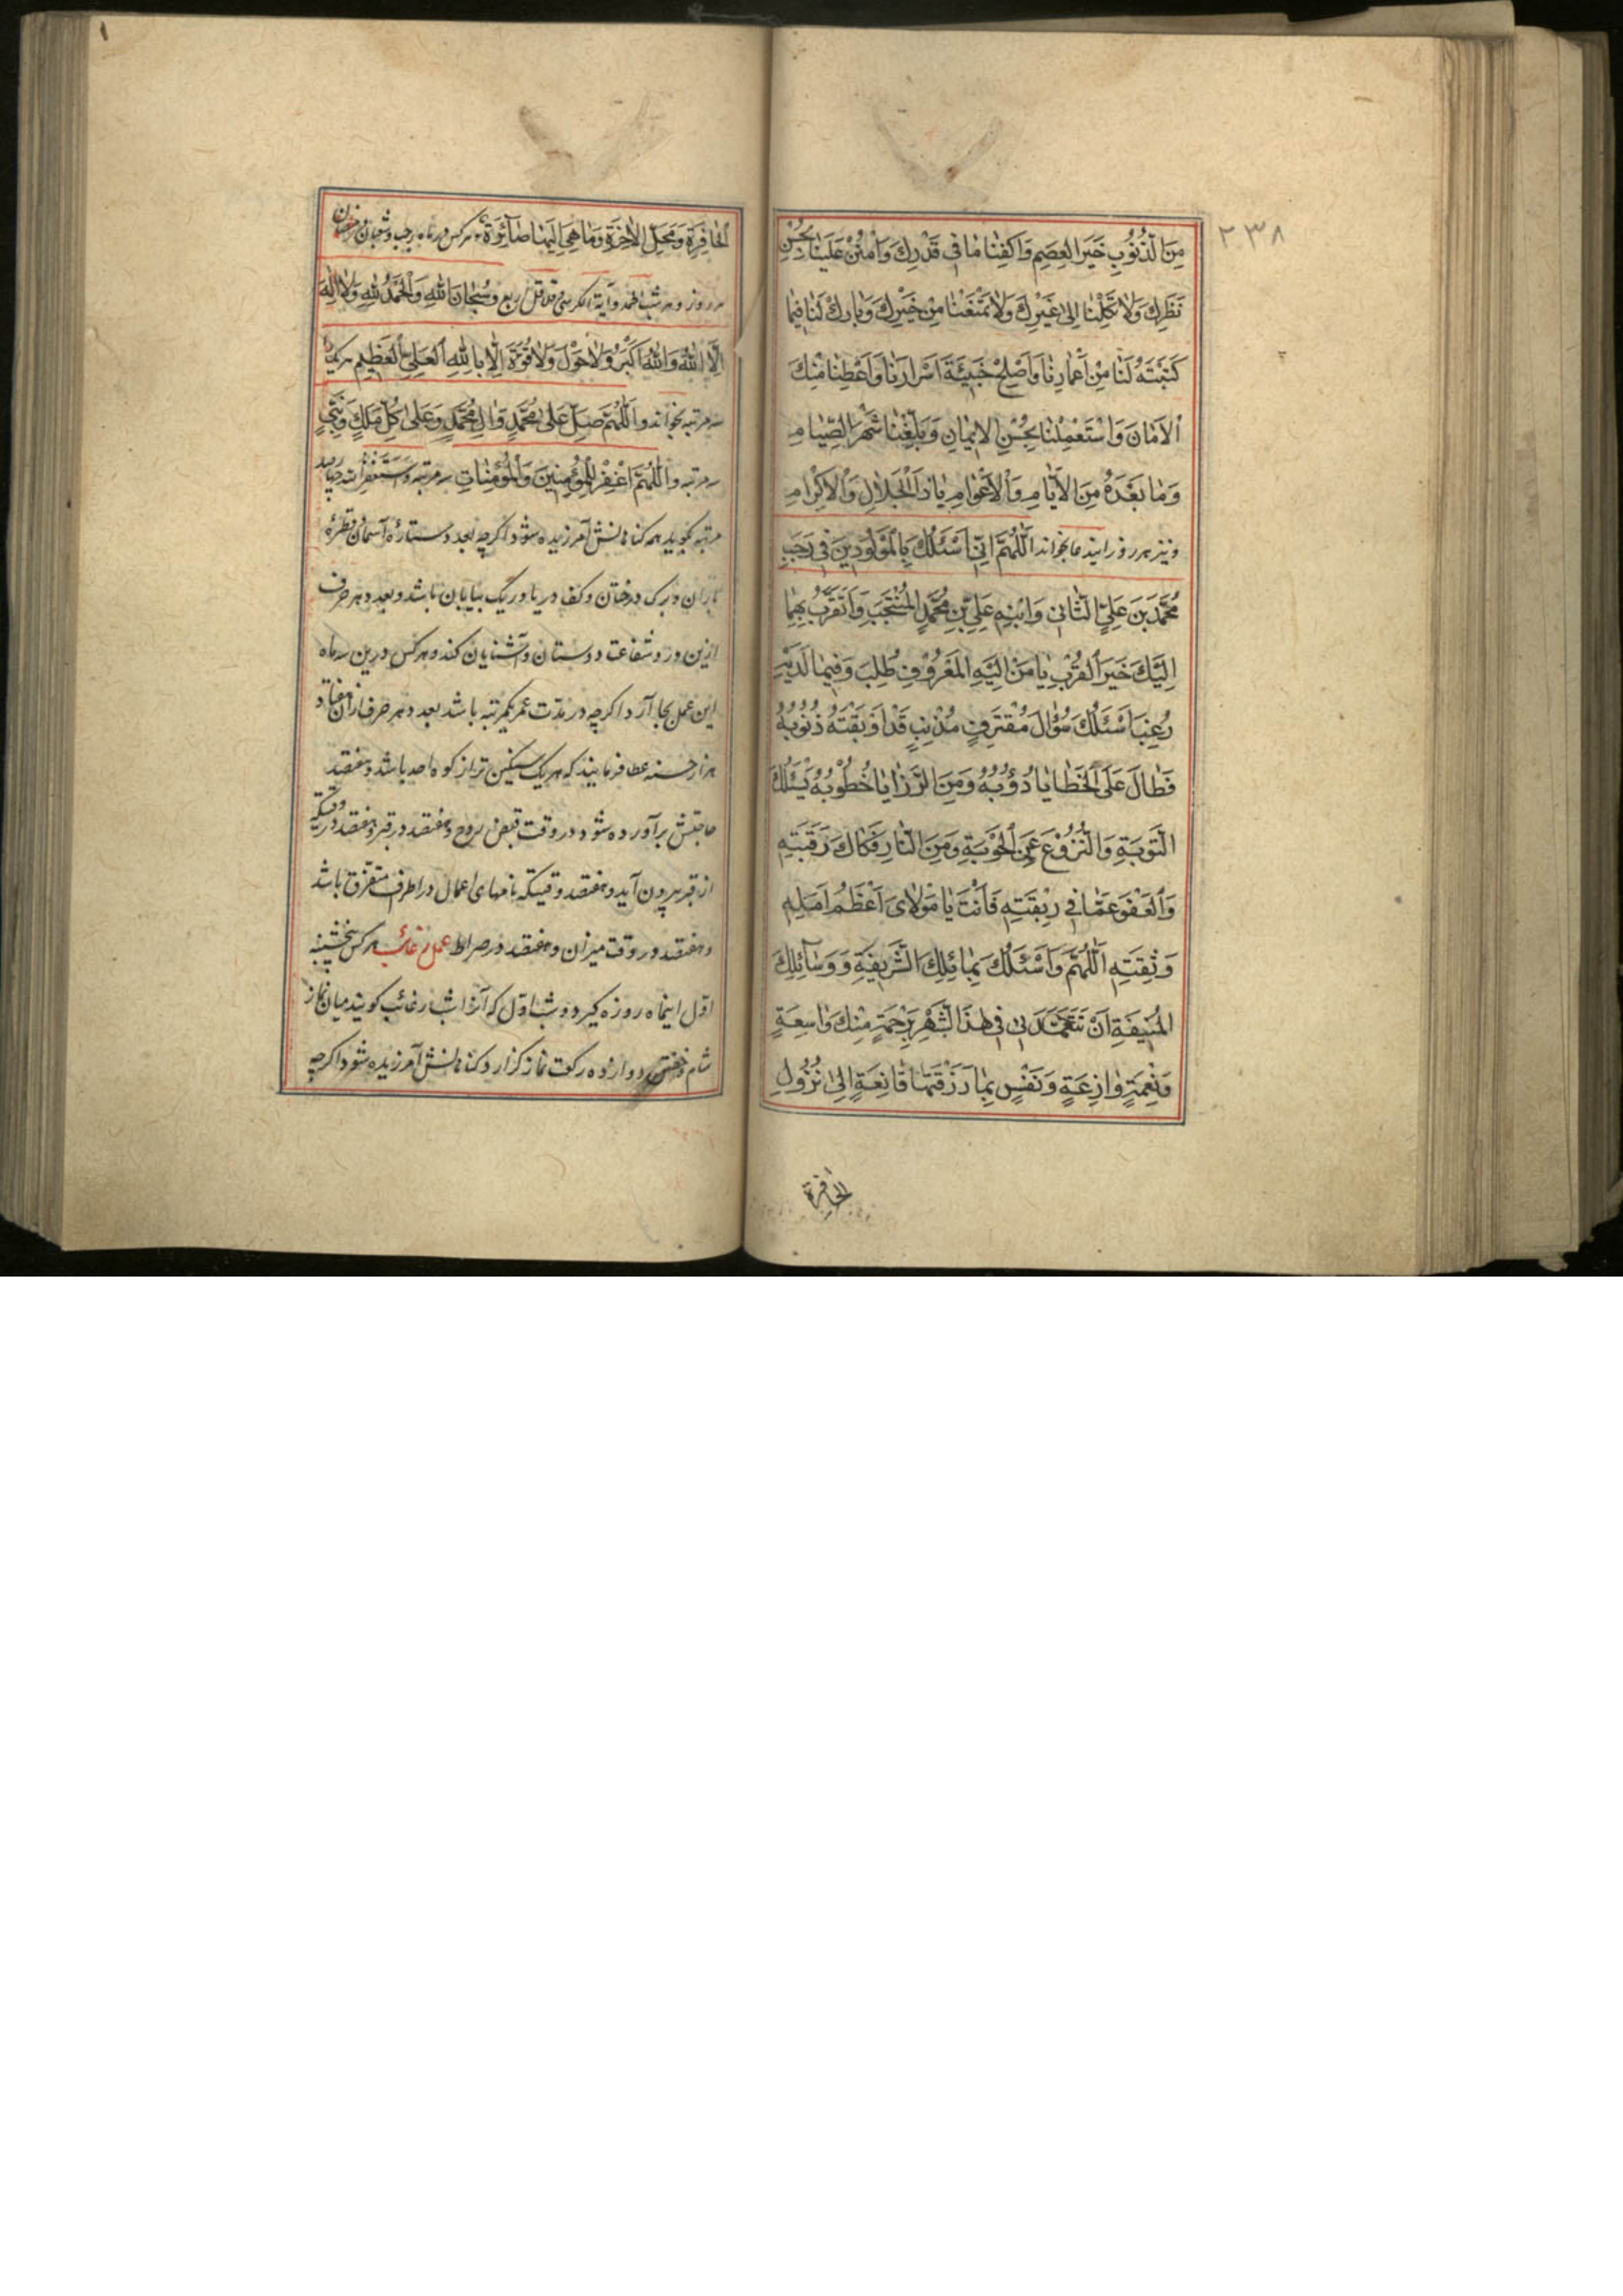 ٢٣٨
مِنَ الذُّنُوبِ خَيْرَ الْعِصَمِ وَاكْفِنَا مَا فِي قَدَرِكَ وَامْنُنْ عَلَيْنَا بِحُسْنِ
نَظَرِكَ وَلَا تَكِلْنَا إِلَى غَيْرِكَ وَلَا تَمْنَعْنَا مِنْ خَيْرِكَ وَبَارِكْ لَنَا فِيمَا
كَتَبْتَهُ لَنَا مِنْ أَعْمَارِنَا وَأَصْلِحْ خَبِيئَةَ أَسْرَارِنَا وَأَعْطِنَا مِنْكَ
الْأَمَانَ وَاسْتَعْمِلْنَا بِحُسْنِ الْإِيمَانِ وَبَلِّغْنَا شَهْرَ الصِّيَامِ
وَمَا بَعْدَهُ مِنَ الْأَيَّامِ وَالْأَعْوَامِ يَا ذَا الْجَلَالِ وَالْإِكْرَامِ
ونیز هر روز این دعا بخواند اَللّٰهُمَّ إِنِّي أَسْئَلُكَ بِالْمَوْلُودَيْنِ فِي رَجَبٍ
مُحَمَّدِ بْنِ عَلِيٍّ الثَّانِي وَابْنِهِ عَلِيِّ بْنِ مُحَمَّدٍ الْمُنْتَجَبِ وَأَتَقَرَّبُ بِهِمَا
إِلَيْكَ خَيْرَ الْقُرَبِ يَا مَنْ إِلَيْهِ الْمَعْرُوفُ طُلِبَ وَفِيمَا لَدَيْهِ
رُغِبَ أَسْئَلُكَ سُؤَالَ مُقْتَرِفٍ مُذْنِبٍ قَدْ أَوْبَقَتْهُ ذُنُوبُهُ
فَطَالَ عَلَى الْخَطَايَا دُؤُوبُهُ وَمِنَ الرَّزَايَا خُطُوبُهُ يَسْئَلُكَ
التَّوْبَةَ وَالنُّزُوعَ عَنِ الْحَوْبَةِ وَمِنَ النَّارِ فَكَاكَ رَقَبَتِهِ
وَالْعَفْوَ عَمَّا فِي رِبْقَتِهِ فَأَنْتَ يَا مَوْلَايَ أَعْظَمُ أَمَلِهِ
وَثِقَتِهِ اَللّٰهُمَّ وَأَسْئَلُكَ بِمَسَائِلِكَ الشَّرِيفَةِ وَوَسَائِلِكَ
الْمُنِيفَةِ أَنْ تَتَغَمَّدَنِي فِي هٰذَا الشَّهْرِ بِرَحْمَةٍ مِنْكَ وَاسِعَةٍ
وَنِعْمَةٍ وَازِعَةٍ وَنَفْسٍ بِمَا رَزَقْتَهَا قَانِعَةٍ إِلَى نُزُولِ
الحافرة
الْحَافِرَةِ وَمَحَلِّ الْآخِرَةِ وَمَا هِيَ إِلَيْهَا صَائِرَةٌ هر کس در ماه رجب وشعبان ورمضان
هر روز و هر شب الحمد وآیة الکرسی و قلاقل اربع وَسُبْحَانَ اللّٰهِ وَالْحَمْدُ لِلّٰهِ وَلَا إِلٰهَ
إِلَّا اللّٰهُ وَاللّٰهُ أَكْبَرُ وَلَا حَوْلَ وَلَا قُوَّةَ إِلَّا بِاللّٰهِ الْعَلِيِّ الْعَظِيمِ هر یک را
سه مرتبه بخواند و اَللّٰهُمَّ صَلِّ عَلَى مُحَمَّدٍ وَآلِ مُحَمَّدٍ وَعَلَى كُلِّ مَلَكٍ وَنَبِيٍّ
سه مرتبه و اَللّٰهُمَّ اغْفِرْ لِلْمُؤْمِنِينَ وَالْمُؤْمِنَاتِ سه مرتبه و اَسْتَغْفِرُ اللّٰهَ چهارصد
مرتبه بگوید همه گناهانش آمرزیده شود اگرچه بعدد ستارهٔ آسمان و قطرهٔ
باران و برک درختان و کف دریا و ریگ بیابان باشد و بعدد هر حرف
ازین روز شفاعت دوستان و آشنایان کند و هر کس درین سه ماه
این عمل بجا آرد اگرچه در مدّت عمر یکمرتبه باشد بعدد هر حرف از آن هفتاد
هزار حسنه عطا فرمایند که هر یک سنگین تر از کوه احد باشد و هفتصد
حاجتش برآورده شود در وقت قبض روح و هفتصد در قبر و هفتصد در وقتیکه
از قبر بیرون آید و هفتصد وقتیکه نامهای اعمال در اطراف متفرق باشد
و هفتصد در وقت میزان و هفتصد در صراط عمل رغائب هر کس پنجشنبه
اول اینماه روزه گیرد و شب اول که آنرا شب رغائب گویند میان نماز
شام و خفتن دوازده رکعت نماز گزارد گناهانش آمرزیده شود اگرچه